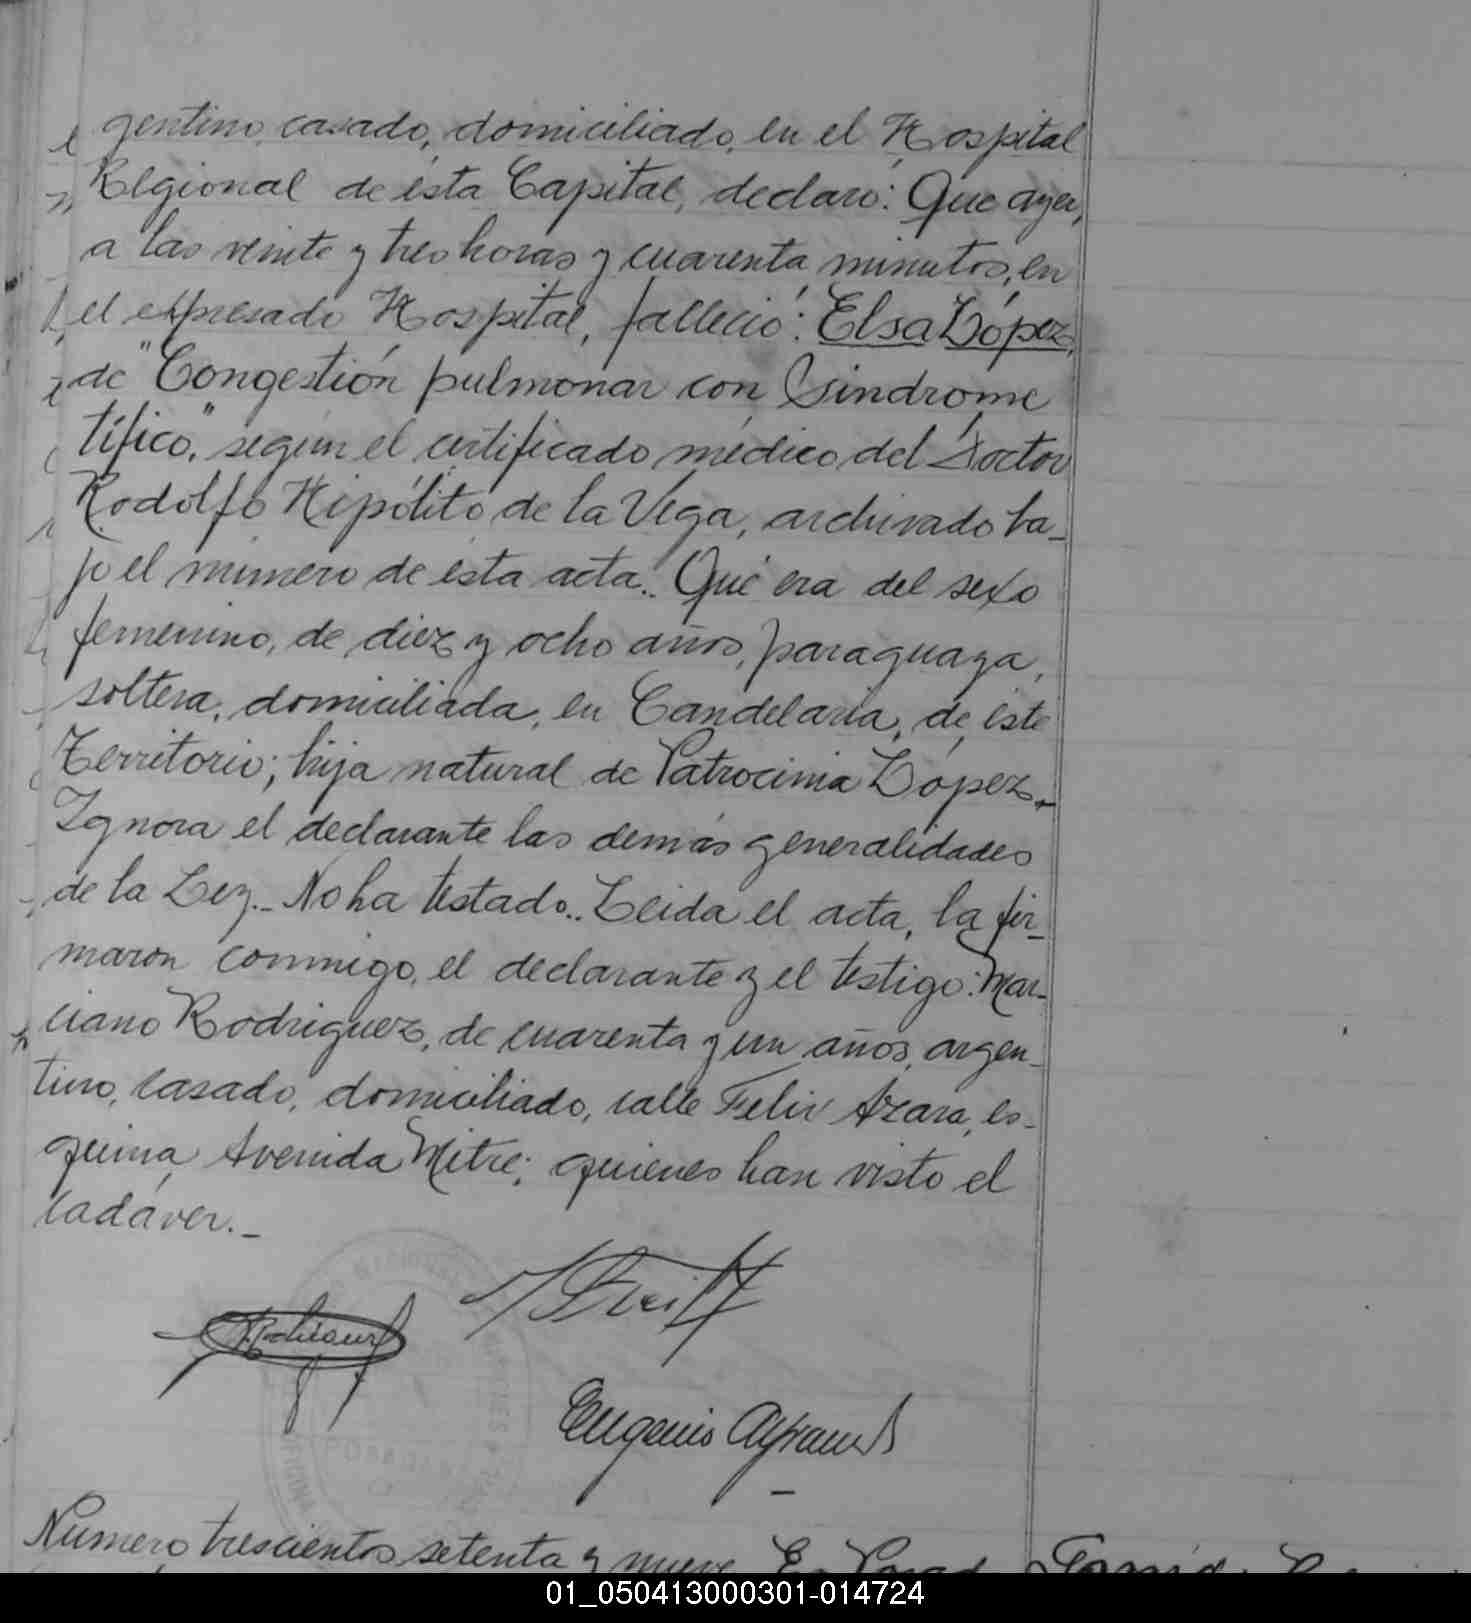 gentino, casado, domiciliado, en el Hospital
Regional de ésta Capital, declaró: Que ayer,
a las veinte y tres horas y cuarenta minutos, en
el expresado Hospital, falleció: Elsa López,
de "Congestión pulmonar con Síndrome
tífico", según el certificado médico del Doctor
Rodolfo Hipólito de la Vega, archivado ba-
jo el número de ésta acta.. Que era del sexo
femenino, de diez y ocho años, paraguaya,
soltera, domiciliada, en Candelaria, de éste
Territorio; hija natural de Patrocinia López.-
Ignora el declarante las demás generalidades
de la Ley.- No ha testado.. Leída el acta, la fir-
maron conmigo, el declarante y el testigo: Mar-
ciano Rodriguez, de cuarenta y un años, argen-
tino, casado, domiciliado, calle Felix Azara, es-
quina, Avenida Mitre; quienes han visto el
cadáver.-
Eugenio
Número trescientos setenta y nueve
01_050413000301-014724